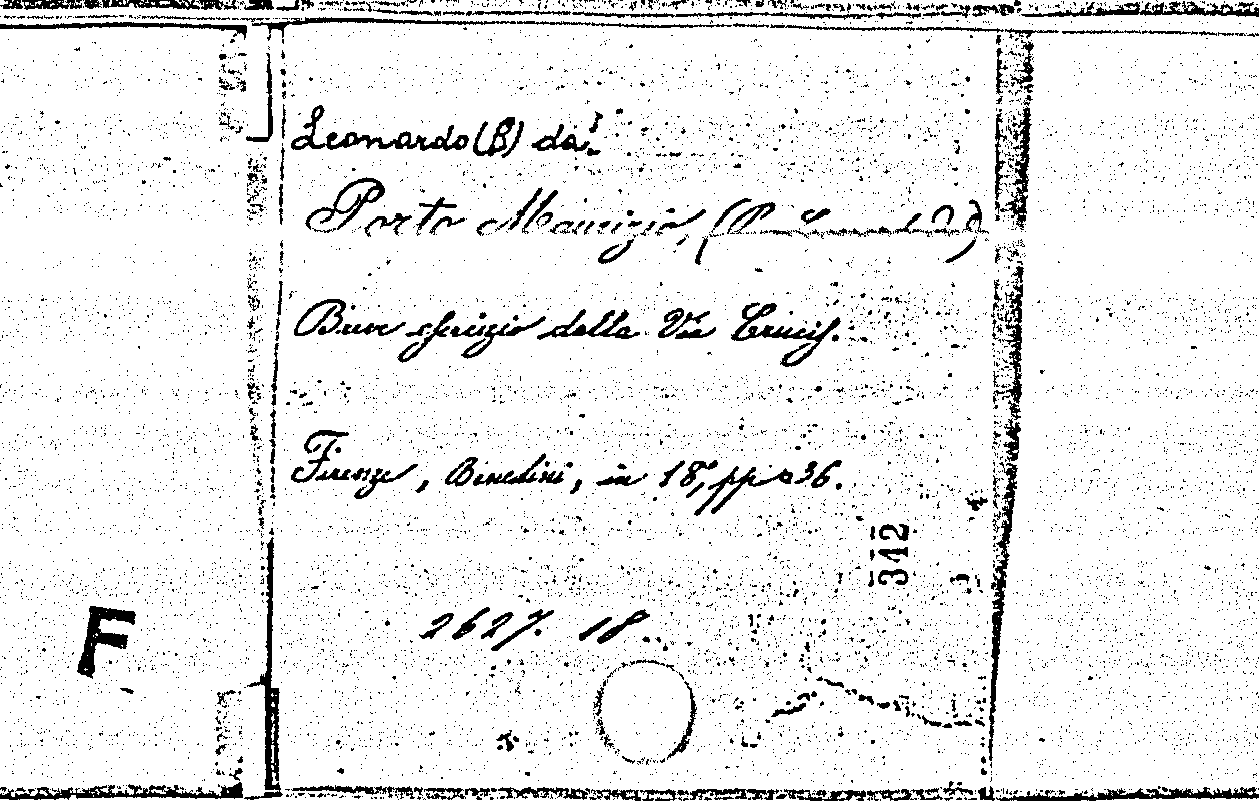 Leonardo (B) da
Porto Maurizio, (P. Leonardo da)
Breve esercizio della Via Crucis.
Firenze, Benelini, in 18°, pp. 36.
342
2627. 18.
F